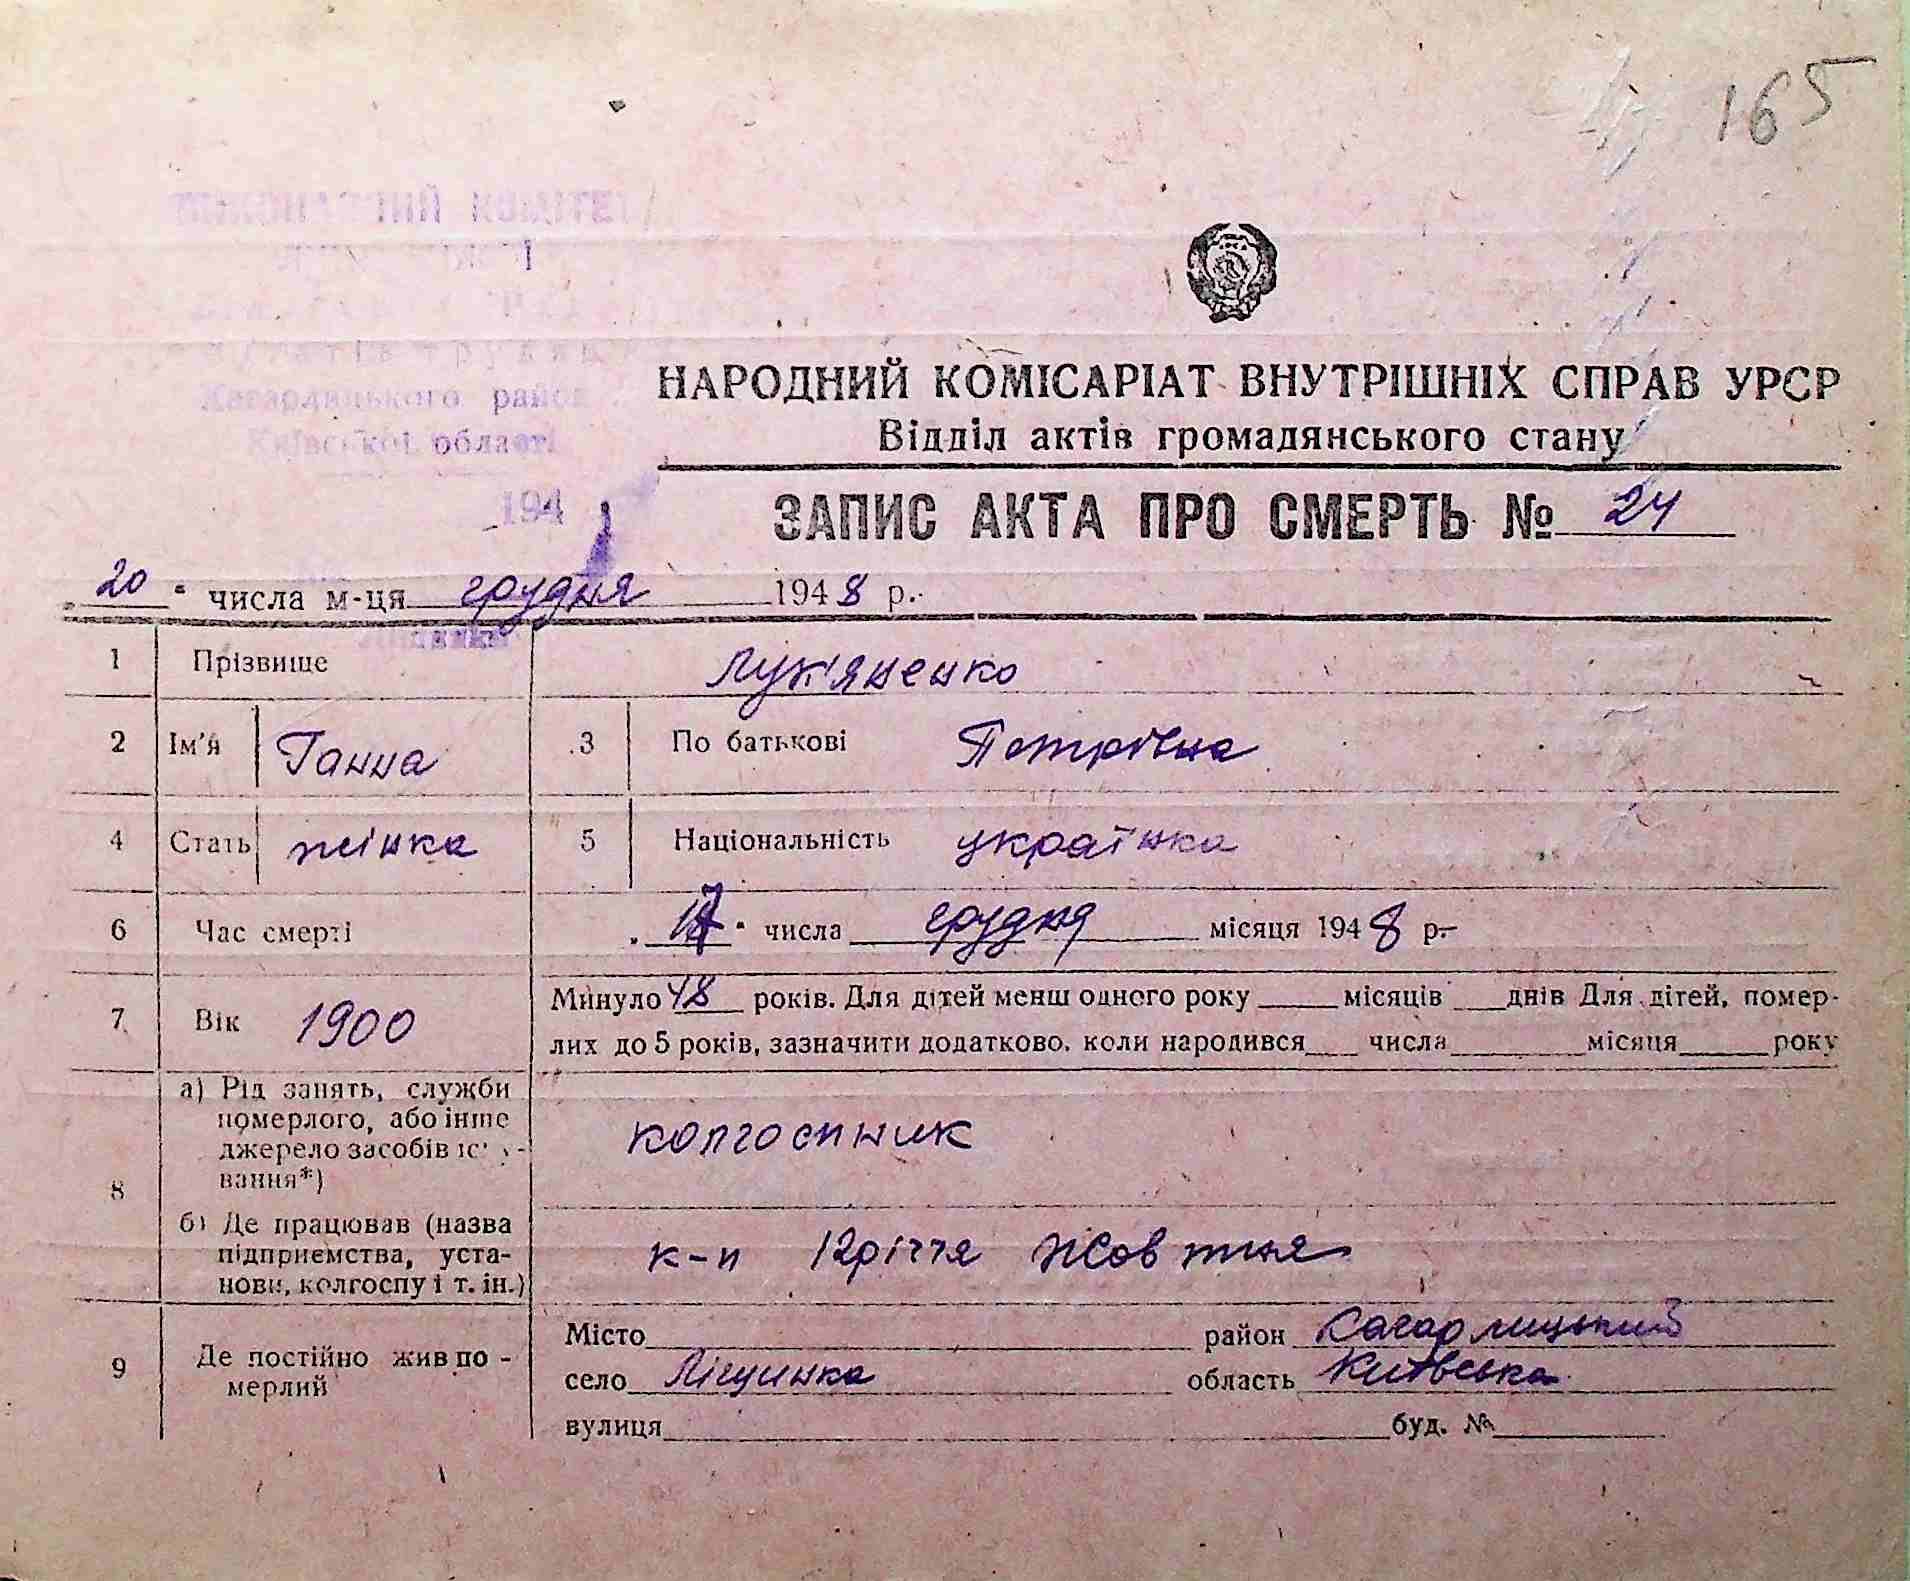 165
Кагарлицького район
Київської області
194
НАРОДНИЙ КОМІСАРІАТ ВНУТРІШНІХ СПРАВ УРСР
Відділ актів громадянського стану
ЗАПИС АКТА ПРО СМЕРТЬ № 24
„20“ числа м-ця грудня 1948 р.
1 Прізвище Лук'яненко
2 Ім'я Ганна 3 По батькові Петрівна
4 Стать жінка 5 Національність українка
6 Час смерті „17“ числа грудня місяця 1948 р.
7 Вік 1900 Минуло 48 років. Для дітей менш одного року місяців днів Для дітей, помер-
лих до 5 років, зазначити додатково, коли народився числа місяця року
8 а) Рід занять, служби
померлого, або інше
джерело засобів існу-
вання*) колгоспник
б) Де працював (назва
підприємства, уста-
нови, колгоспу і т. ін.) к-п 12річчя Жовтня
9 Де постійно жив по-
мерлий
Місто район Кагарлицький
село Ліщинка область Київська
вулиця буд. №